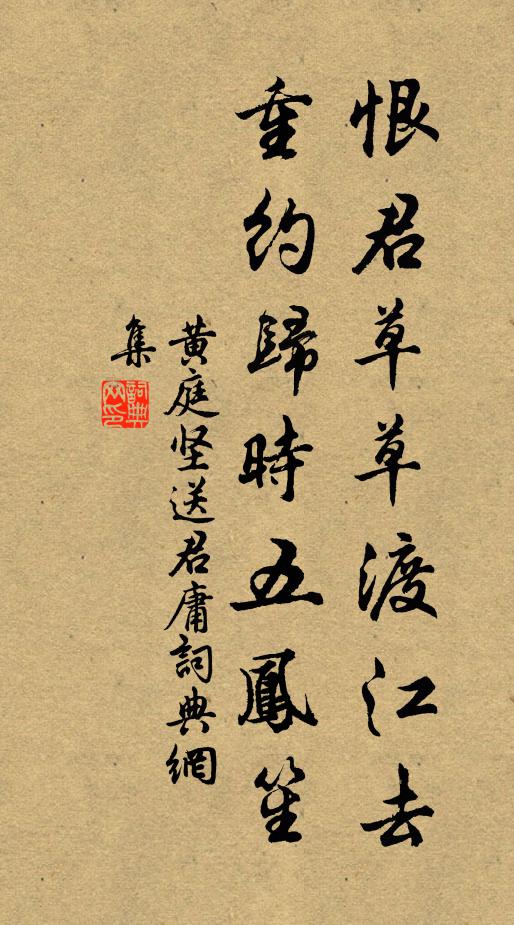 恨君草草渡江去
重約歸時五鳳笙
黄庭坚送君庸詞典網
集
詞典網印